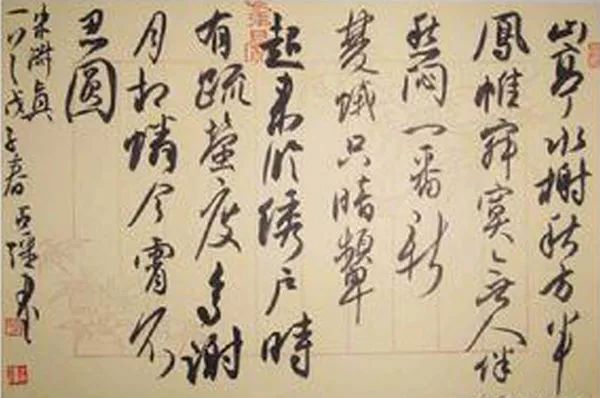 山亭水榭秋方半
鳳帷寂寞無人伴
愁悶一番新
雙蛾只暗顰
起來臨綉户時
有疏螢度多謝
月相憐今宵不
忍圓
朱淑真
戊子春